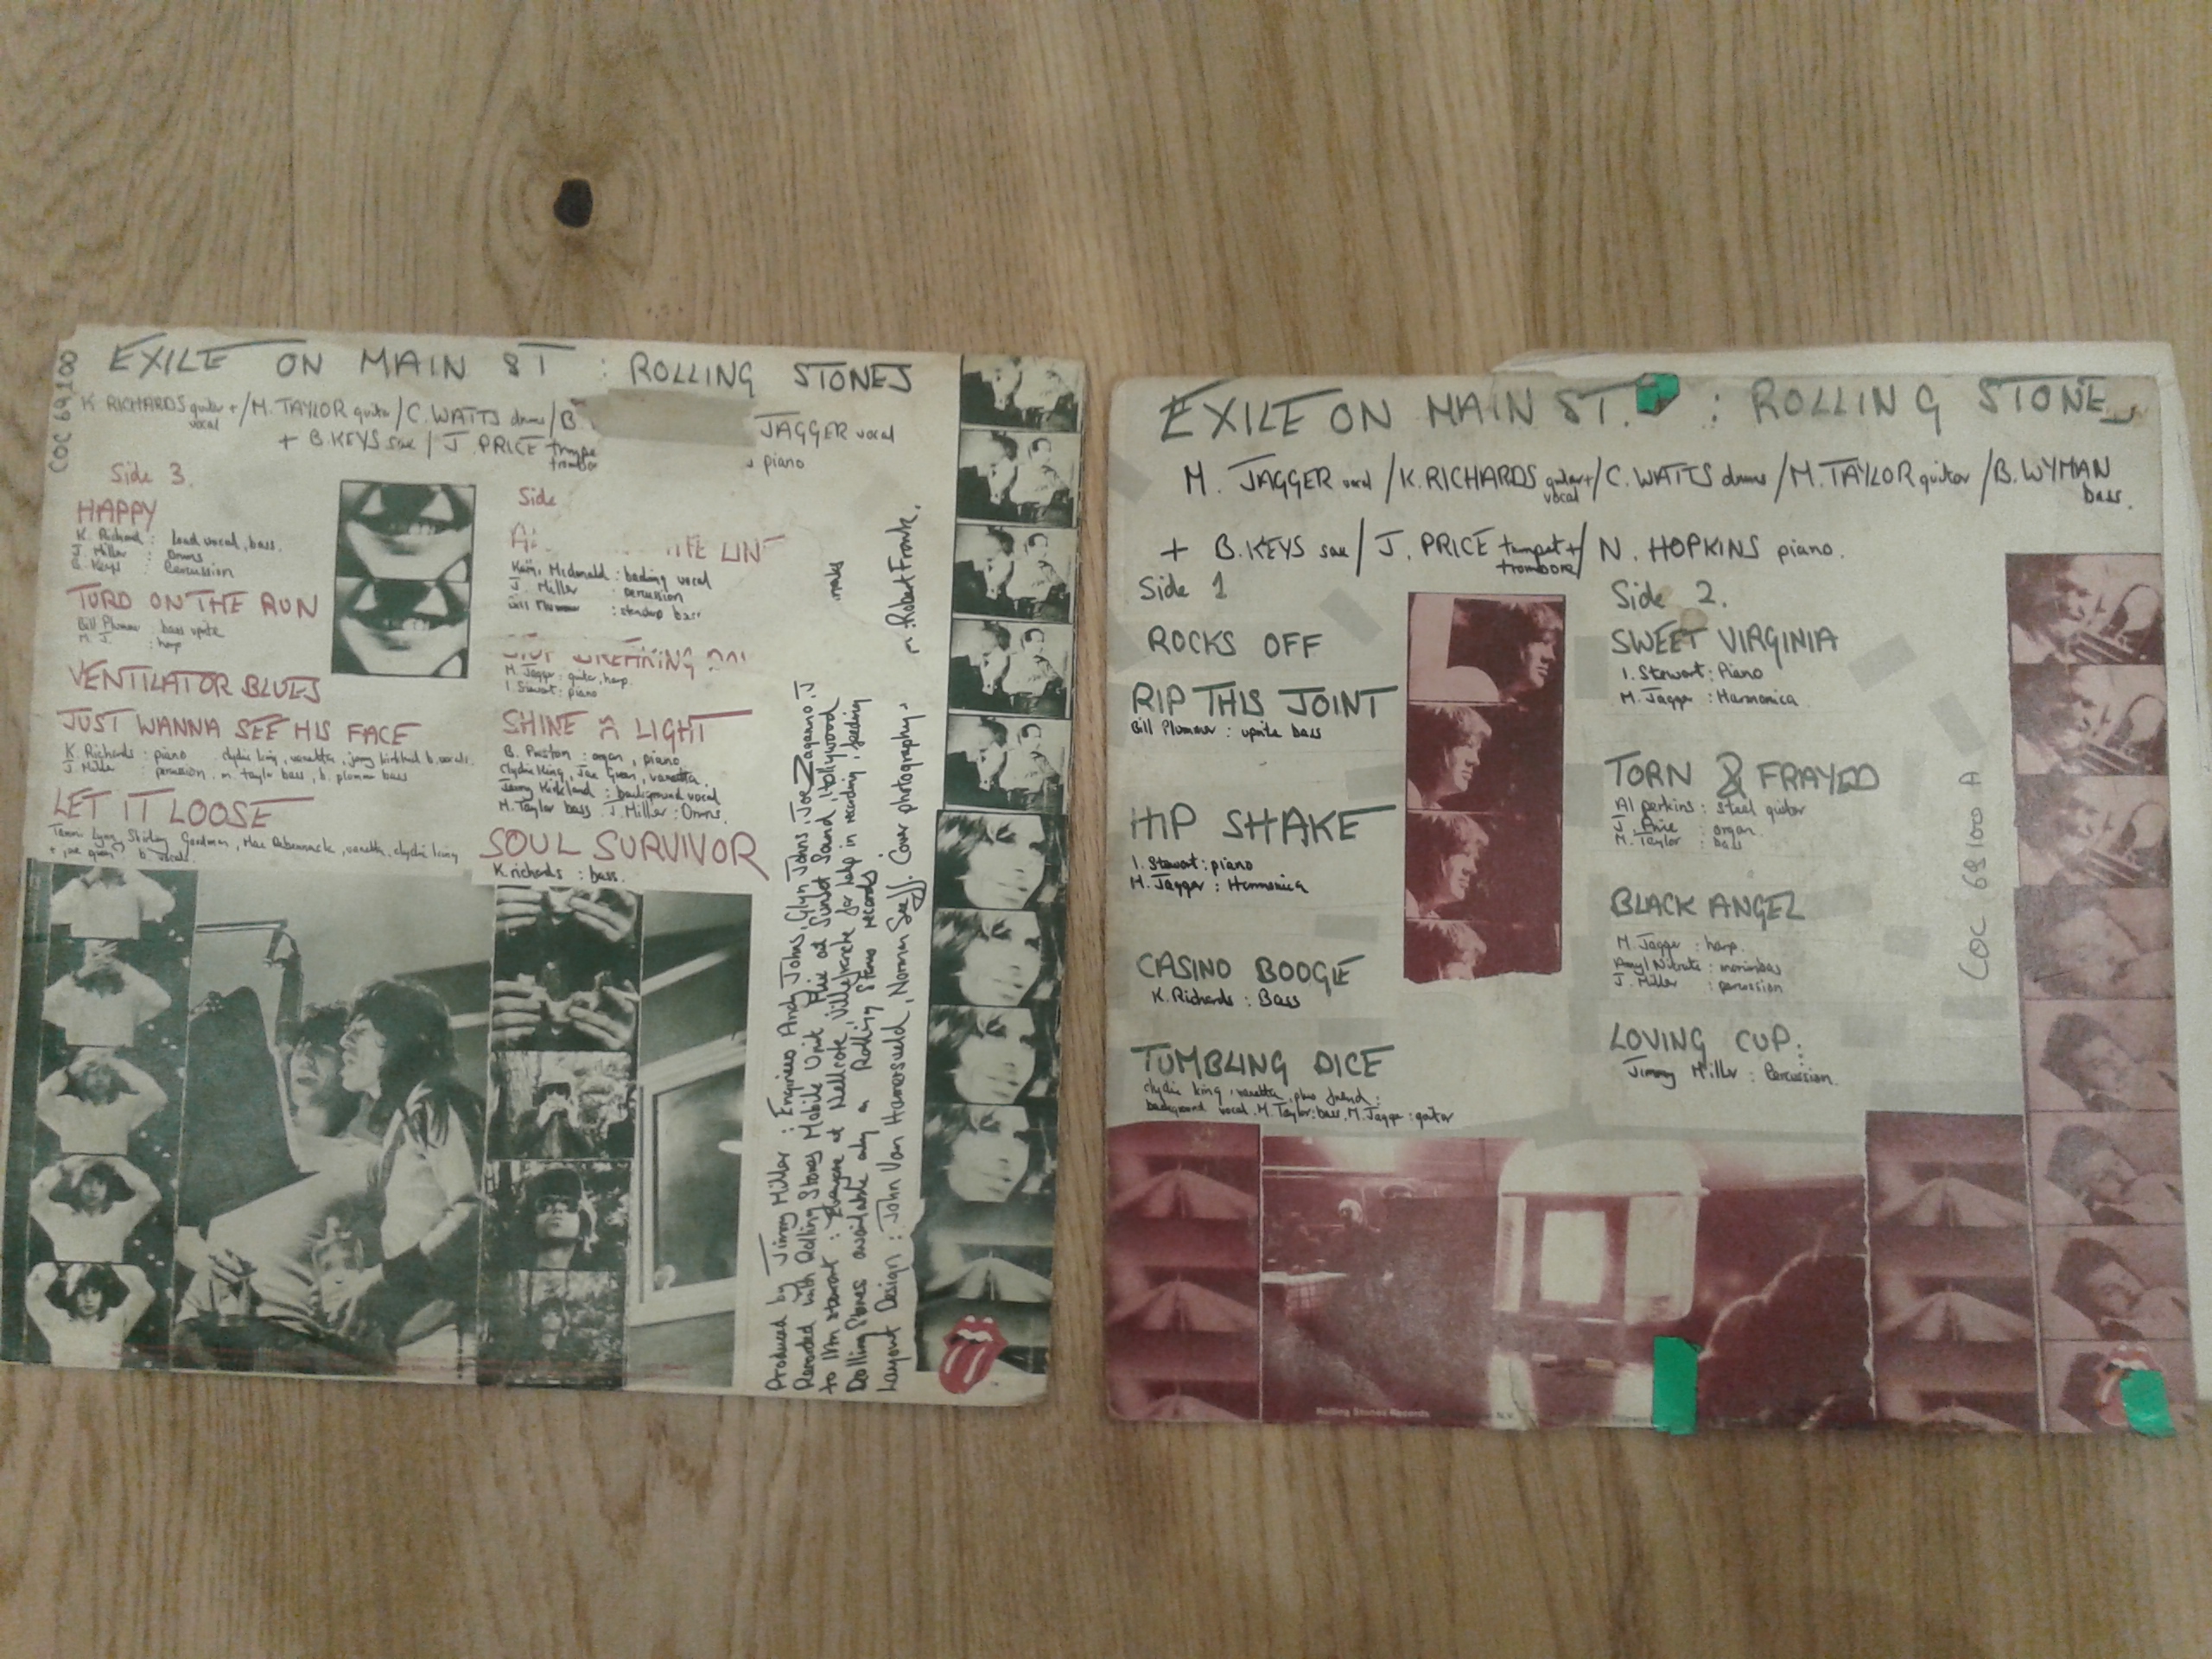 COC 69100
EXILE ON MAIN ST : ROLLING STONES
K RICHARDS guitar + vocal / M. TAYLOR guitar / C. WATTS drums / B
JAGGER vocal
+ B. KEYS sax / J. PRICE
piano
Side 3.
HAPPY
K. Richard : lead vocal, bass.
J. Miller : Drums
B. Keys : Percussion
TURD ON THE RUN
Bill Plummer : bass uprite
M. J. : harp
VENTILATOR BLUES
JUST WANNA SEE HIS FACE
K. Richards : piano clydie king, vanetta, jerry kirkland b. vocals.
J. Miller : percussion. m. taylor bass, b. plummer bass
LET IT LOOSE
Tammi Lynn, Shirley Goodman, Mac Rebennack, vanetta, clydie king
+ joe green b. vocals.
Side
THE LINE
Kathi Mcdonald : backing vocal
J. Miller : percussion
Bill Plummer : standup bass
M. Jagger : guitar, harp.
I. Stewart : piano
SHINE A LIGHT
B. Preston : organ, piano
Clydie King, Joe Green, vanetta,
Jerry Kirkland : background vocal
M. Taylor bass J. Miller : Drums.
SOUL SURVIVOR
K. richards : bass.
Produced by Jimmy Miller : Engineers Andy Johns, Glyn Johns, Joe Zagarino, J
Recorded with Rolling Stones Mobile Unit at Sunset Sound, Hollywood
to Ian stewart : Everyone at Nellcote, Villefranche for help in recording, feeding
Rolling Stones available only on Rolling Stones records
Layout Design : John Van Hamersveld, Norman Seeff. Cover photography
Robert Frank.
EXILE ON MAIN ST. : ROLLING STONE
M. JAGGER vocal / K. RICHARDS guitar + vocal / C. WATTS drums / M. TAYLOR guitar / B. WYMAN bass.
+ B. KEYS sax / J. PRICE trumpet + trombone / N. HOPKINS piano.
Side 1
ROCKS OFF
RIP THIS JOINT
Bill Plummer : uprite bass
HIP SHAKE
I. Stewart : piano
M. Jagger : Harmonica
CASINO BOOGIE
K. Richards : Bass
TUMBLING DICE
clydie king, vanetta, plus friend :
background vocal. M. Taylor : bass, M. Jagger : guitar
Side 2.
SWEET VIRGINIA
I. Stewart : Piano
M. Jagger : Harmonica
TORN & FRAYED
Al perkins : steel guitar
J. Price : organ
M. Taylor : bass
BLACK ANGEL
M. Jagger : harp.
Amyl Nitrate : marimbas
J. Miller : percussion
LOVING CUP :
Jimmy Miller : Percussion.
COC 69100 A
Rolling Stones Records
N.Y.